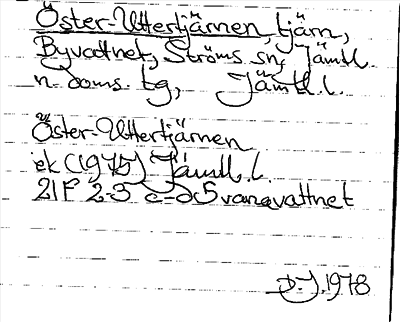 Öster-Uttertjärnen, tjärn,
Byvattnet, Ströms sn, Jämtl.
n. doms. tg, Jämtl. l.
Öster-Uttertjärnen
ek (1975) Jämtl. l.
21F 2-3 c-d Svanavattnet
D.J. 1978